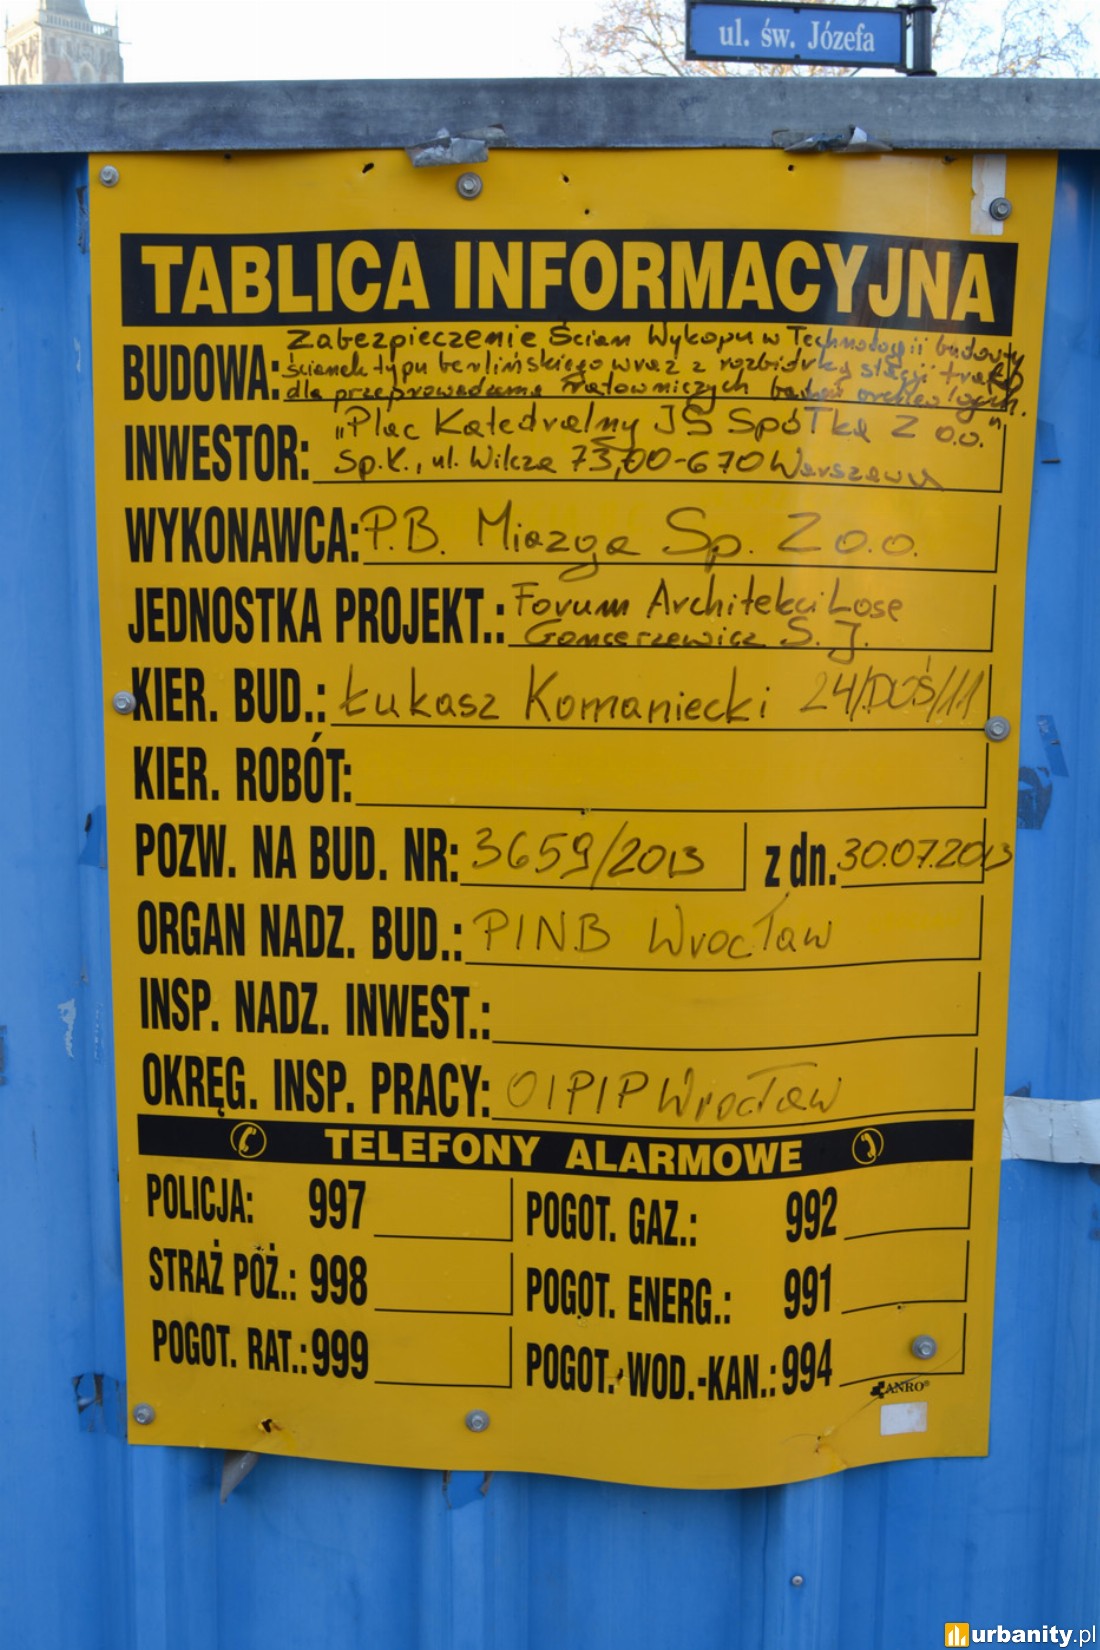 ul. św. Józefa
TABLICA INFORMACYJNA
BUDOWA: Zabezpieczenie Ścian Wykopu w Technologii budowy
ścianek typu berlińskiego wraz z rozbiórką stacji trafo
dla przeprowadzenia ratowniczych badań archeologicz.
INWESTOR: "Plac Katedralny JS Spółka Z o.o."
Sp.K., ul. Wilcza 73, 00-670 Warszawa
WYKONAWCA: P.B. Miazga Sp. Z o.o.
JEDNOSTKA PROJEKT.: Forum Architekci Lose
Goncerzewicz S.J.
KIER. BUD.: Łukasz Komaniecki 24/DOŚ/11
KIER. ROBÓT:
POZW. NA BUD. NR: 3659/2013 z dn. 30.07.2013
ORGAN NADZ. BUD.: PINB Wrocław
INSP. NADZ. INWEST.:
OKRĘG. INSP. PRACY: OIPIP Wrocław
TELEFONY ALARMOWE
POLICJA: 997 POGOT. GAZ.: 992
STRAŻ POŻ.: 998 POGOT. ENERG.: 991
POGOT. RAT.: 999 POGOT. WOD.-KAN.: 994
ANRO®
urbanity.pl